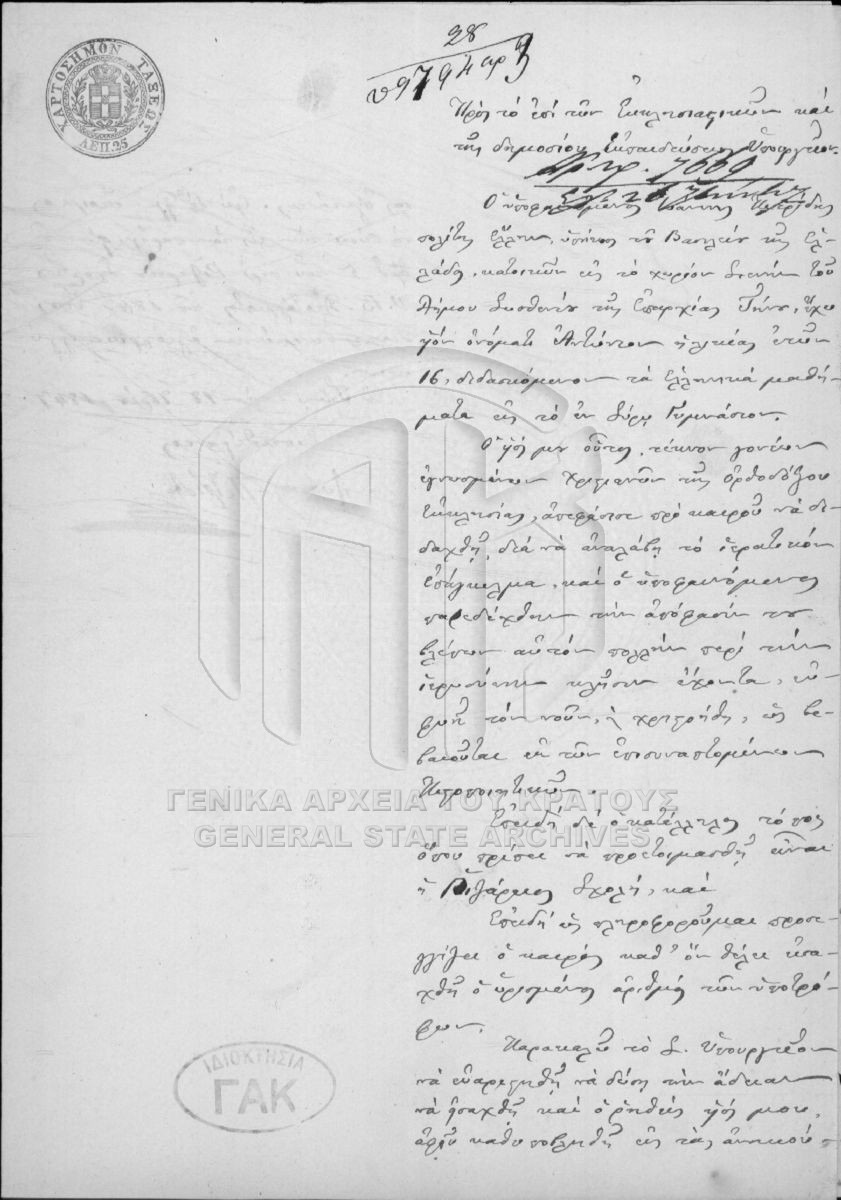 ΧΑΡΤΟΣΗΜΟΝ ΤΑΞΕΩΣ
ΛΕΠ. 25
28
Πρὸς τὸ ἐπὶ τῶν Ἐκκλησιαστικῶν καὶ
τῆς δημοσίου Ἐκπαιδεύσεως Ὑπουργεῖον.
Ἀρ. πρ. 7669
Ὁ ὑποφαινόμενος Ἰωάννης
πολίτης Ἕλλην, ὑπήκοος τοῦ Βασιλείου τῆς Ἑλ-
λάδος, κατοικῶν εἰς τὸ χωρίον Στενήν τοῦ
Δήμου Σωσθενίου τῆς Ἐπαρχίας Τήνου, ἔχω
υἱὸν ὀνόματι Ἀντώνιον ἡλικίας ἐτῶν
16, διδασκόμενον τὰ Ἑλληνικὰ μαθή-
ματα εἰς τὸ ἐν Σύρῳ Γυμνάσιον.
Ὁ υἱός μου οὗτος, τέκνον γονέων
ἐγνωσμένων χριστιανῶν τῆς ὀρθοδόξου
Ἐκκλησίας, ἀπεφάσισε πρὸ καιροῦ νὰ δι-
δαχθῇ, διὰ νὰ ἀναλάβῃ τὸ ἱερατικὸν
ἐπάγγελμα, καὶ ὁ ὑποφαινόμενος
παρεδέχθην τὴν ἀπόφασίν του
βλέπων αὐτὸν πολλὴν περὶ τὴν
ἱερωσύνην κλῆσιν ἔχοντα, εὐ-
φυῆ τὸν νοῦν, ἢ χρηστοήθη, ὡς βε-
βαιοῦται ἐκ τῶν ἐπισυναπτομένων
πιστοποιητικῶν.
Ἐπειδὴ δὲ ὁ κατάλληλος τόπος
ὅπου πρέπει νὰ προετοιμασθῇ εἶναι
ἡ Ῥιζάρειος Σχολή, καὶ
Ἐπειδὴ ὡς πληροφοροῦμαι προσε-
γγίζει ὁ καιρὸς καθ' ὃν θέλει εἰσα-
χθῇ ὁ ὡρισμένος ἀριθμὸς τῶν ὑποτρό-
φων,
Παρακαλῶ τὸ Σ. Ὑπουργεῖον
νὰ εὐαρεστηθῇ νὰ δώσῃ τὴν ἄδειαν
νὰ εἰσαχθῇ καὶ ὁ ῥηθεὶς υἱός μου,
ἀφοῦ καθυποβληθῇ εἰς τὰς ἀνηκού-
ΓΕΝΙΚΑ ΑΡΧΕΙΑ ΤΟΥ ΚΡΑΤΟΥΣ
GENERAL STATE ARCHIVES
ΙΔΙΟΚΤΗΣΙΑ
ΓΑΚ